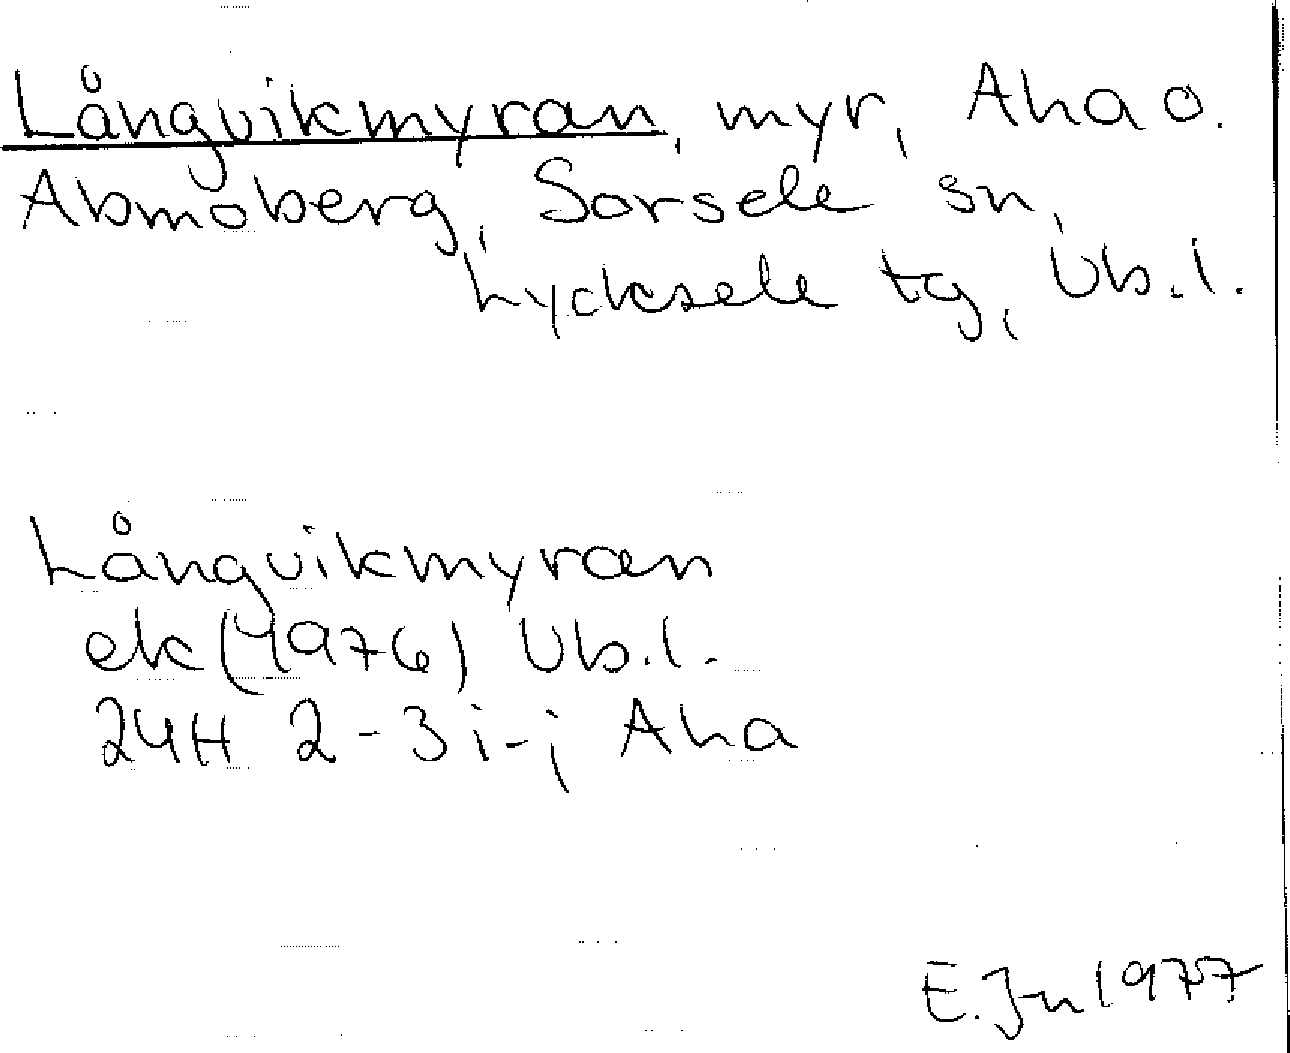 Långvikmyran, myr, Aha o.
Abmoberg, Sorsele sn,
Lycksele tg, Vb.l.
Långvikmyran
ek (1976) Vb.l.
24H 2-3 i-j Aha
E. Jn 1977